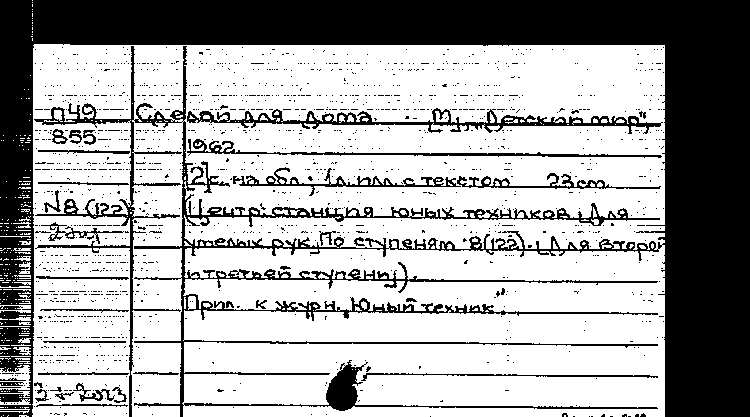 П49 Сделай для дома. М., „Детский мир",
855 1962.
[2]с. на обл.; 1л. илл. с текстом 23 см.
N8 (122) (Центр. станция юных техников. Для
2 экз умелых рук. По ступеням 8(122). Для второй
и третьей ступени).
Прил. к журн. „Юный техник".